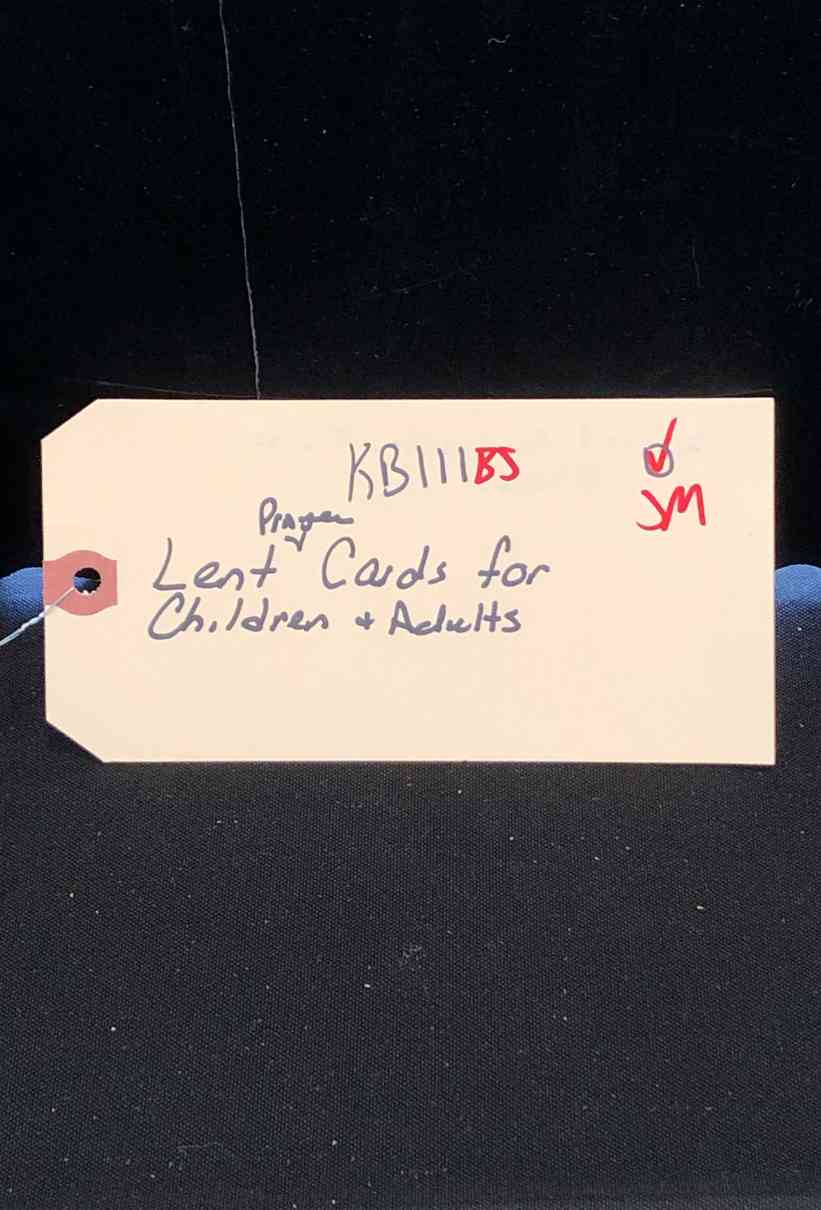 KB111BS
JM
Prayer
Lent Cards for
Children + Adults